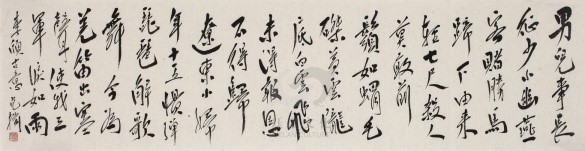 男兒事長
征少小幽燕
客賭勝馬
蹄下由来
輕七尺殺人
莫敢前
鬚如蝟毛
磔黃雲隴
底白雲飛
未得報恩
不得歸
遼東小婦
年十五慣彈
琵琶解歌
舞今為
羌笛出塞
聲使我三
軍淚如雨
李頎古意